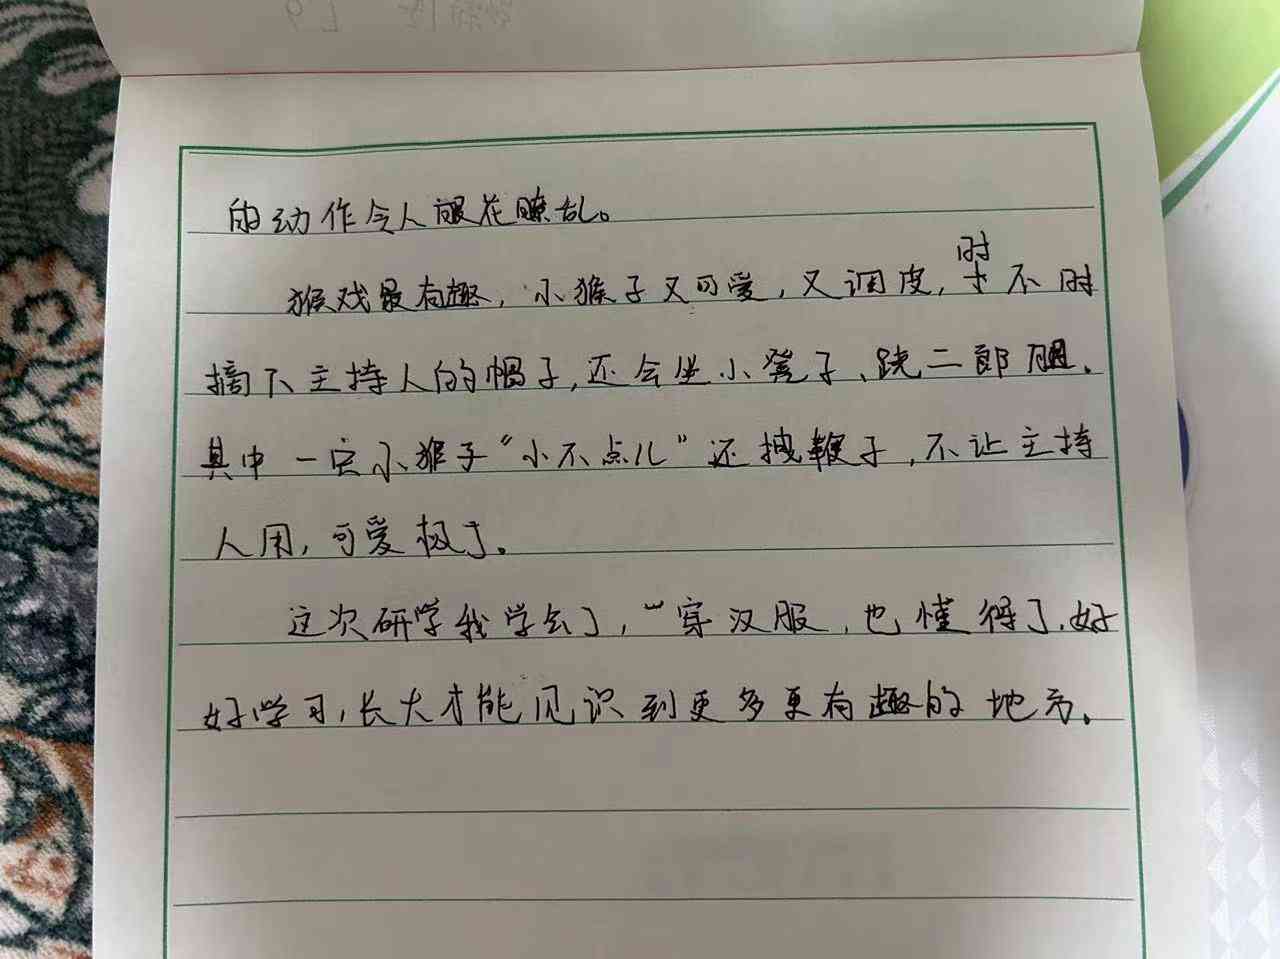 的动作令人眼花瞭乱。
猴戏最有趣，小猴子又可爱，又调皮，时不时
摘下主持人的帽子，还会坐小凳子、跷二郎腿。
其中一只小猴子“小不点儿”还拽鞭子，不让主持
人用，可爱极了。
这次研学我学会了，穿汉服，也懂得了，好
好学习，长大才能见识到更多更有趣的地方。